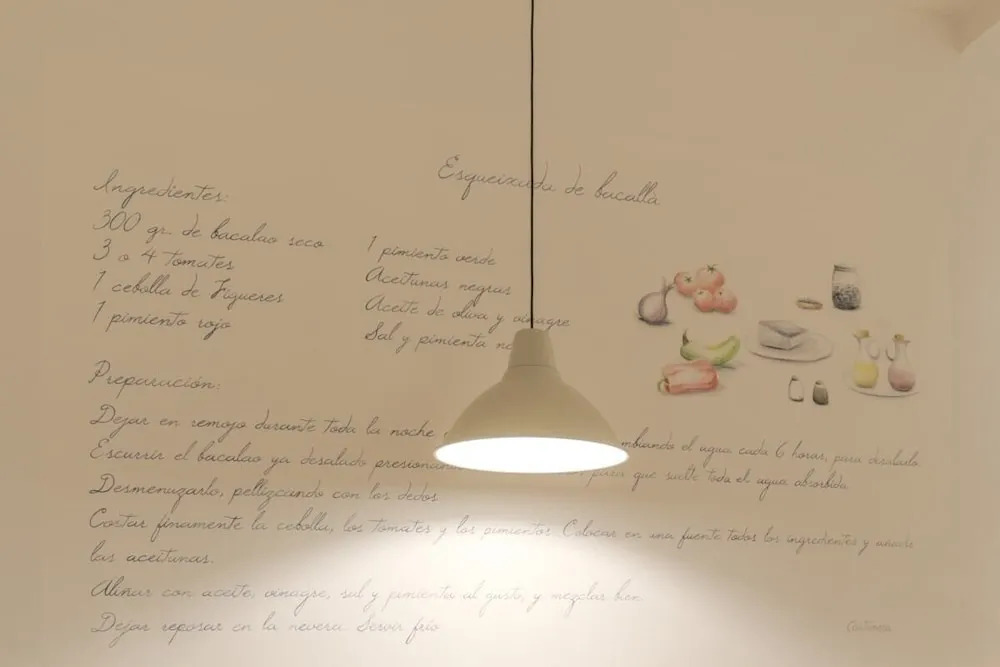 Esqueixada de bacallà
Ingredientes:
300 gr. de bacalao seco
3 o 4 tomates
1 cebolla de Figueres
1 pimiento rojo
1 pimiento verde
Aceitunas negras
Aceite de oliva y vinagre
Sal y pimienta
Preparación:
Dejar en remojo durante toda la noche el agua cada 6 horas, para desalarlo.
Escurrir el bacalao ya desalado para que suelte toda el agua absorbida.
Desmenuzarlo, pellizcando con los dedos
Cortar finamente la cebolla, los tomates y los pimientos. Colocar en una fuente todos los ingredientes y añadir
las aceitunas.
Aliñar con aceite, vinagre, sal y pimienta al gusto, y mezclar bien.
Dejar reposar en la nevera. Servir frío